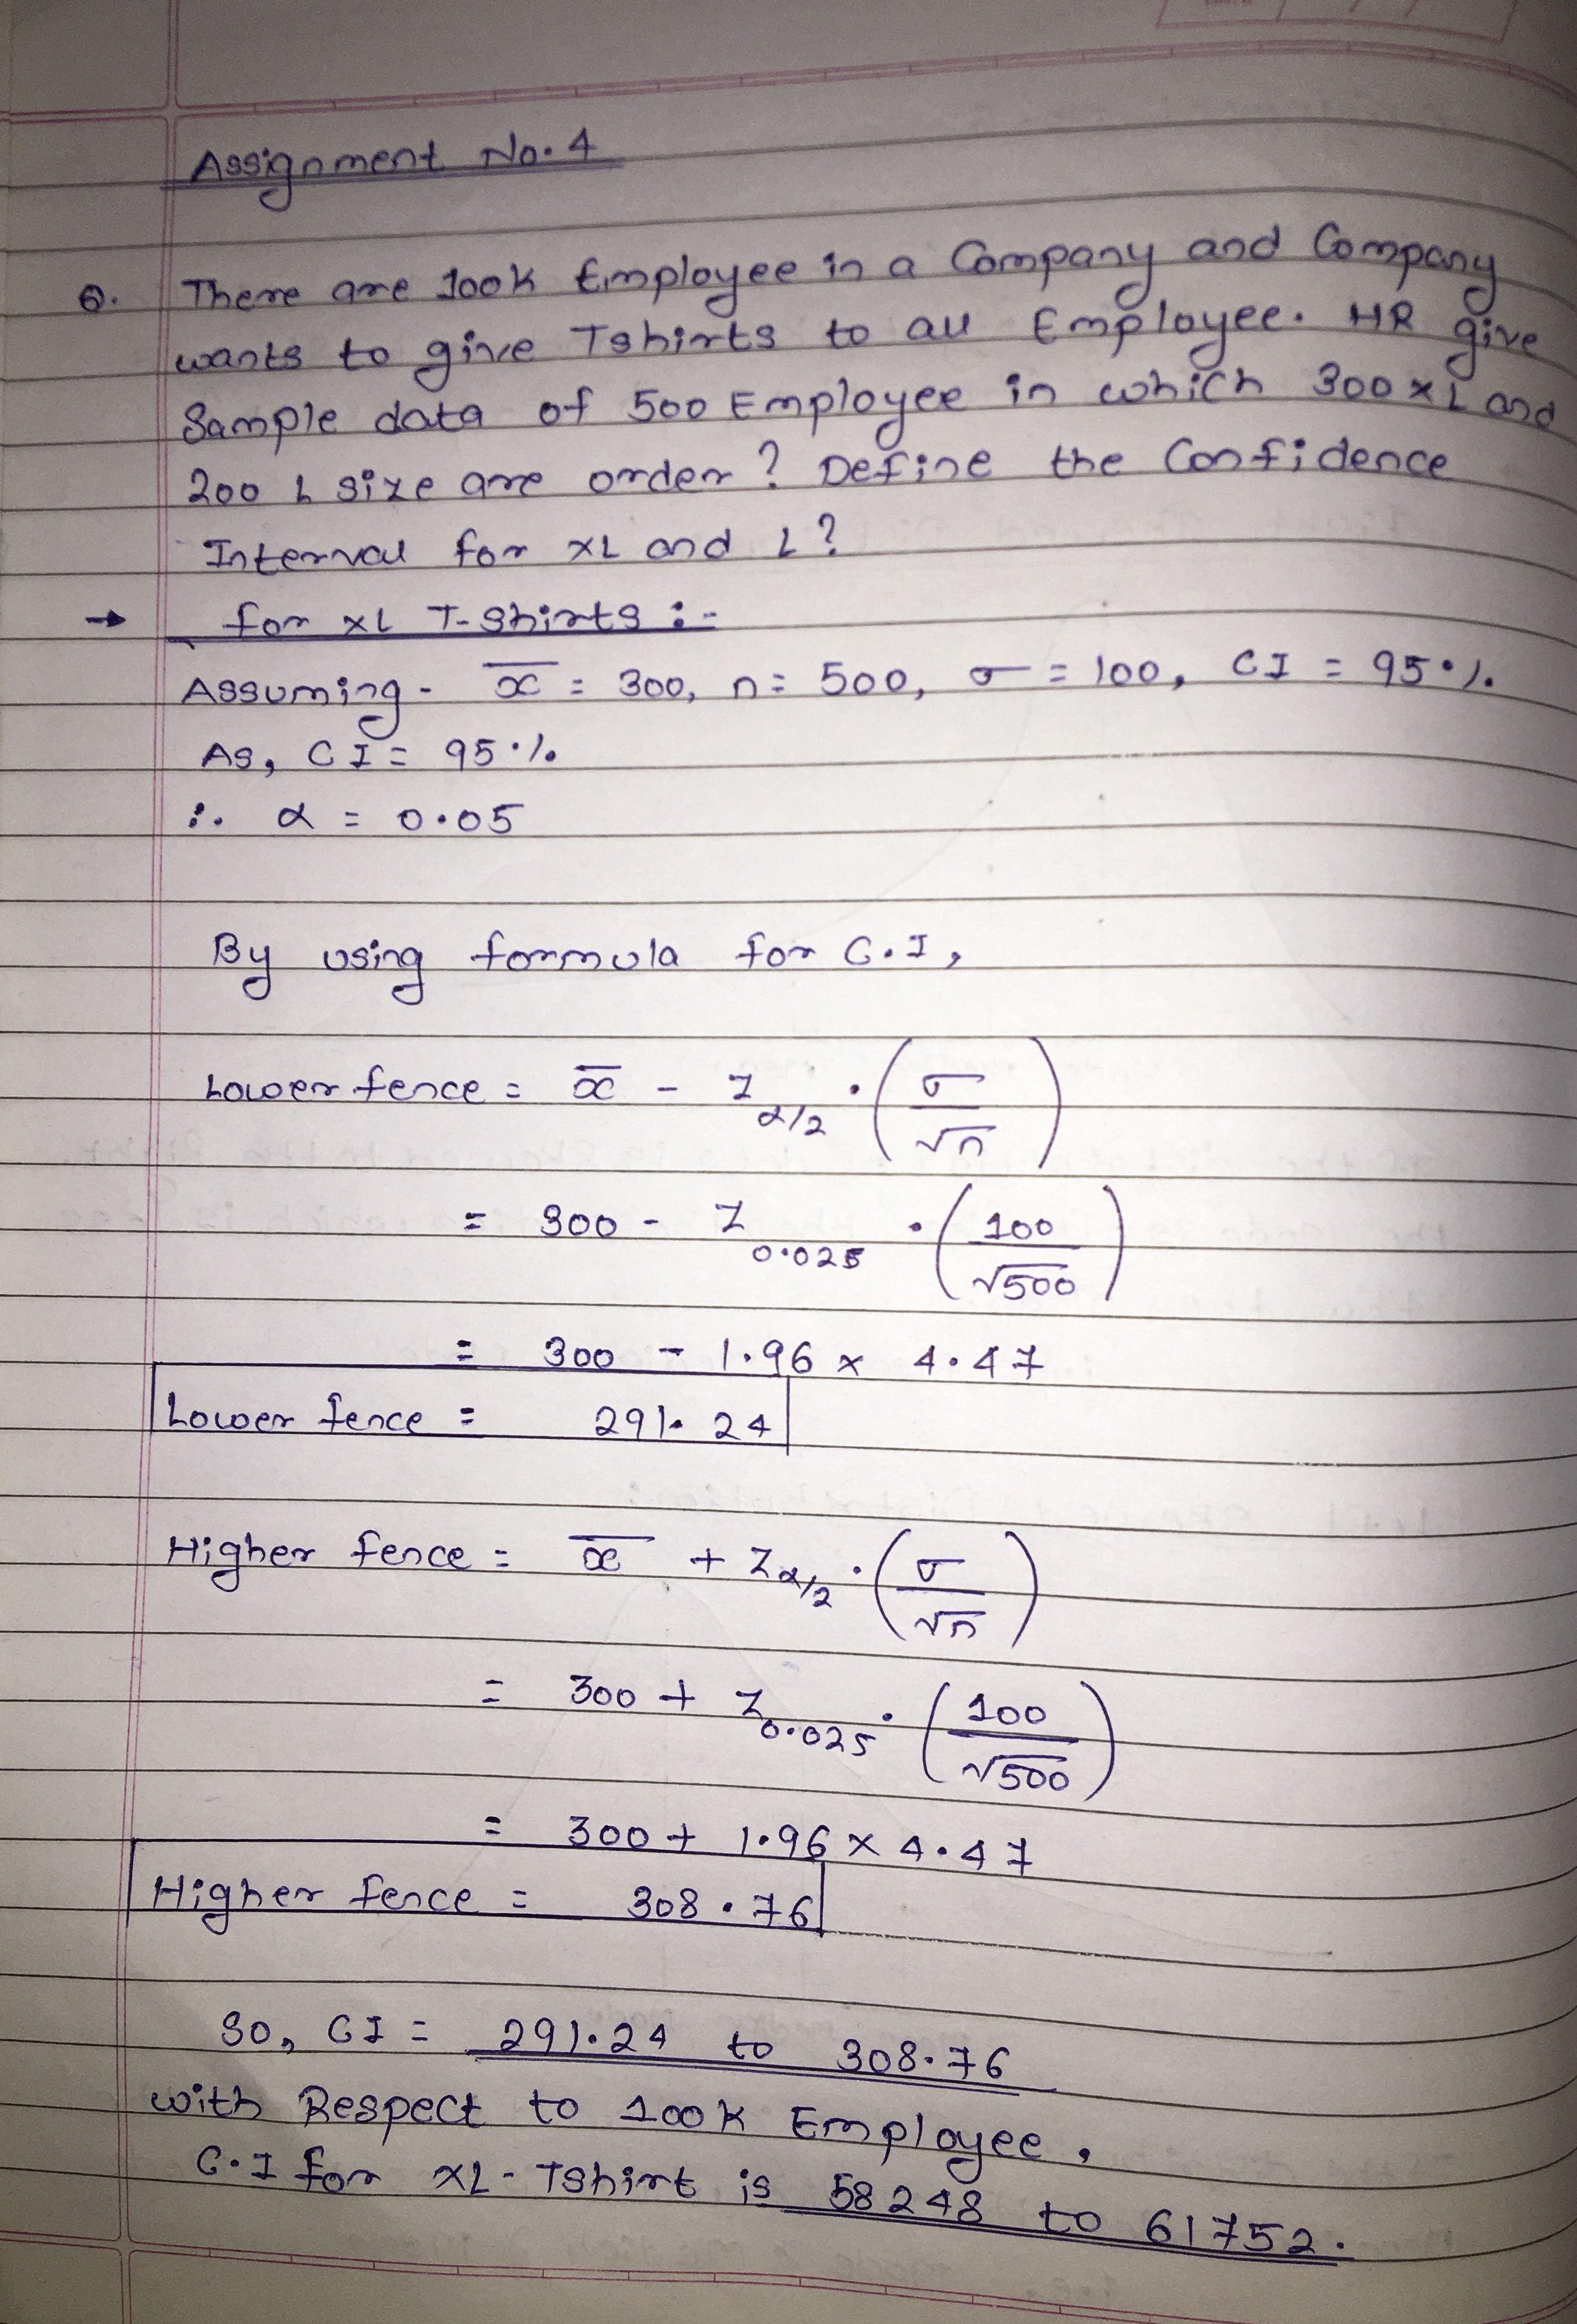 Assignment No. 4
Q. There are 100k Employee in a Company and Company
wants to give Tshirts to all Employee. HR give
Sample data of 500 Employee in which 300 XL and
200 L size are order? Define the Confidence
Interval for XL and L?
→ for XL T-Shirts :-
Assuming - x̄ = 300, n = 500, σ = 100, CI = 95%
As, CI = 95%
∴ α = 0.05
By using formula for C.I,
Lower fence = x̄ - Z α/2 . (σ/√n)
= 300 - Z 0.025 . (100/√500)
= 300 - 1.96 × 4.47
Lower fence = 291.24
Higher fence = x̄ + Z α/2 . (σ/√n)
= 300 + Z 0.025 . (100/√500)
= 300 + 1.96 × 4.47
Higher fence = 308.76
So, CI = 291.24 to 308.76
with Respect to 100k Employee,
C.I for XL - Tshirt is 58248 to 61752.